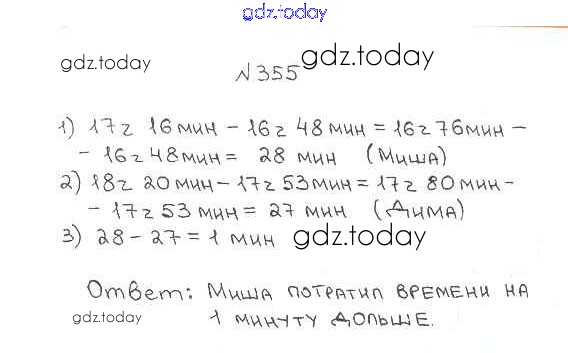 gdz.today
gdz.today
gdz.today
№355
1) 17г 16 мин - 16г 48 мин = 16г 76мин -
- 16г 48 мин = 28 мин (Миша)
2) 18г 20 мин - 17г 53 мин = 17г 80 мин -
- 17г 53 мин = 27 мин (Дима)
3) 28 - 27 = 1 мин
gdz.today
Ответ: Миша потратил времени на
gdz.today
1 минуту дольше.